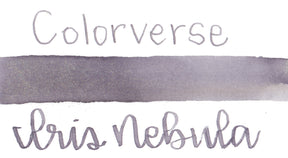 Colorverse
Iris Nebula